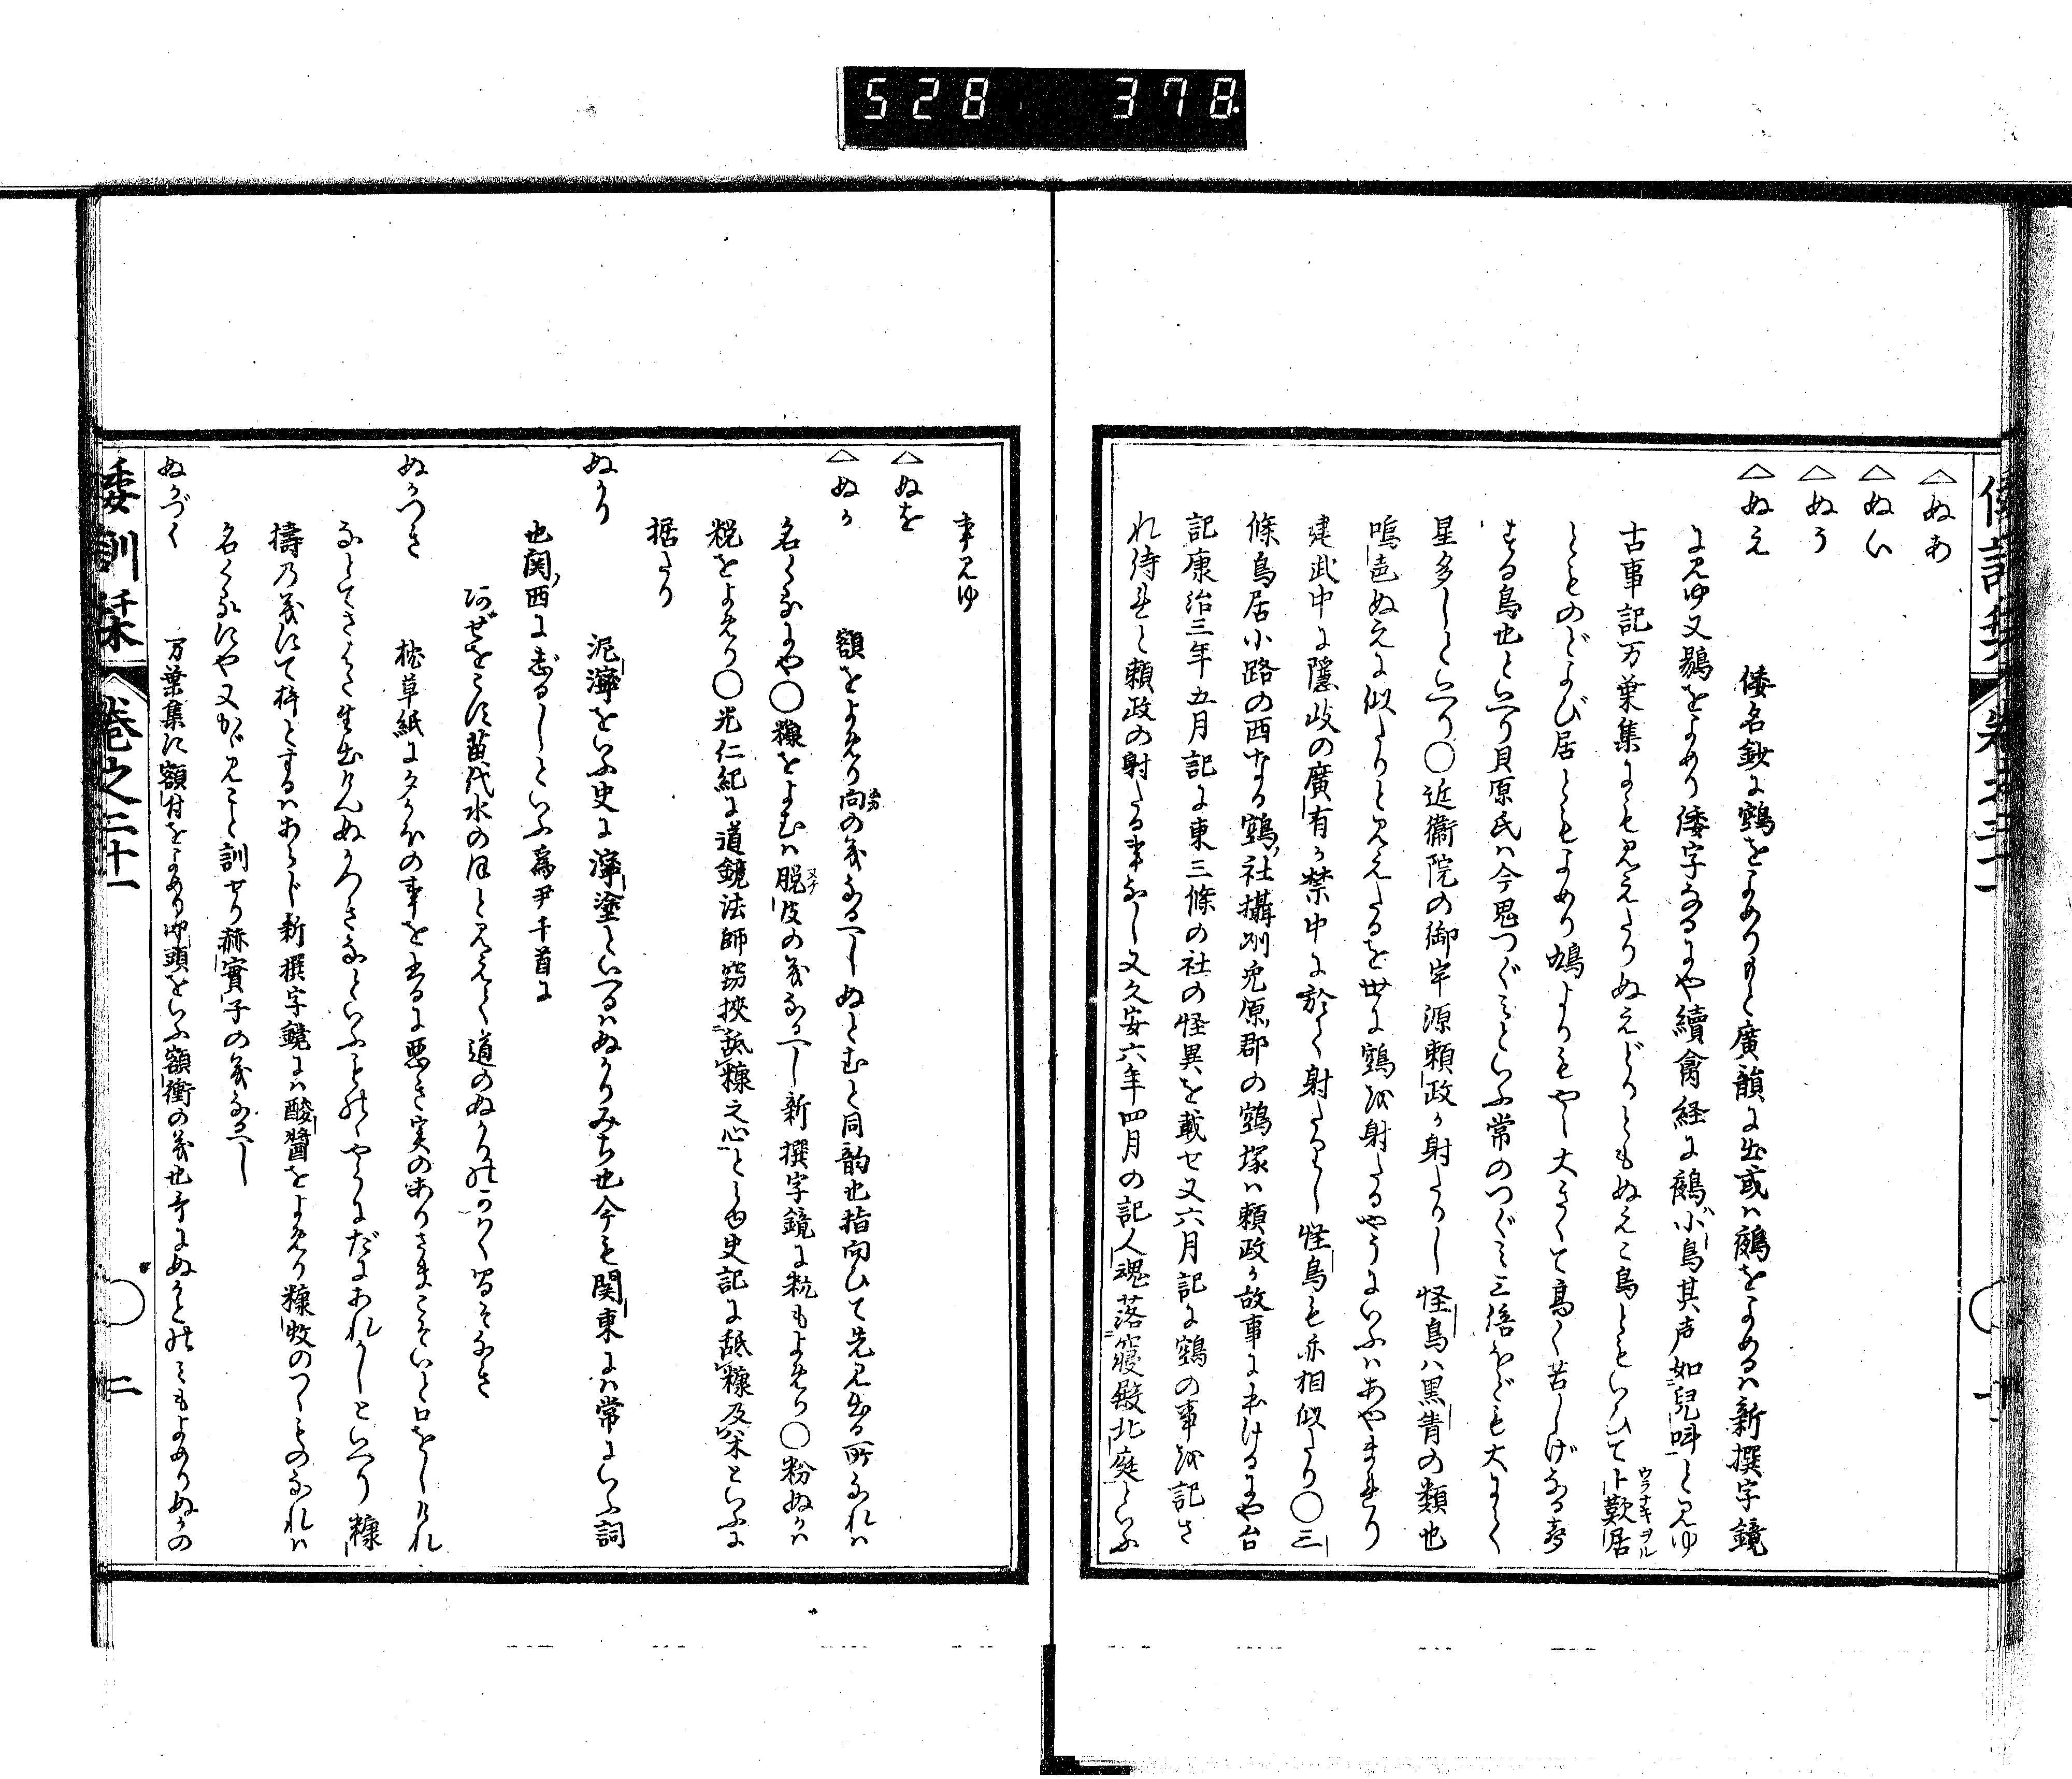 528 378
倭訓栞 巻之二十一
△ぬあ
△ぬい
△ぬう
△ぬえ 倭名鈔に鵼をよめりもと廣韻に出或ハ鵺をよめるハ新撰字鏡
に見ゆ又鵺をよめり倭字なるにや續禽経に鵺ハ小鳥其声如兒呌と見ゆ
古事記万葉集にも見えたりぬえどりともぬえこ鳥ともいひて卜歎居ウラナキヲル
とものどよび居ともよめり鳩よりもやゝ大きくて高く苦しげなる声
する鳥也といへり貝原氏ハ今思つぐミといふ常のつぐミ三倍ほども大にして
星多しといへり〇近衞院の御宇源頼政か射たりし怪鳥ハ黒青の類也
鳴色ぬえに似たりと見えたるを世に鵼を射たるやうにいふハあやまれり
建武中に隱岐の廣有か禁中に於て射たりし怪鳥も亦相似たり〇三
條鳥居小路の西なる鵼社攝州兎原郡の鵼塚ハ頼政か故事に本けるにや台
記康治三年五月記に東三條の社の怪異を載せ又六月記に鵼の事を記さ
れ侍れと頼政の射たる事なし又久安六年四月の記人魂落寝殿北庭といふ
事見ゆ
△ぬを
△ぬか 額をよめり向の義なるへしぬとむと同韵也指向ひて先見る所なれハ
名くるにや〇糠をよむハ脱皮の義なるへし新撰字鏡に粃もよめり〇粉ぬかハ
粃をよめり〇光仁紀に道鏡法師窃挾舐糠之心と見ゆ史記に舐糠及米といふに
据たり
ぬかり 泥濘をいふ史に濘塗といへるハぬかりみち也今も関東にハ常にいふ詞
也関西にしるしといふ爲尹千首に
あぜをこす苗代水のほと見えて道のぬかりのかわくまそなき
ぬかつき 枕草紙に夕かほの事を書るに悪き実のありさまこそいと口をしけれ
なとてさはた生出けんぬかつきなといふものゝやうにだにあれかしといへり糠
擣乃義にて杵とするハあらじ新撰字鏡にハ酸醤をよめり糠蚊のつくものなれハ
名くるにや又かゞみこと訓せり赫實子の義なるへし
ぬかづく 万葉集に額付をよめり叩頭をいふ額衝の義也寺にぬかとのミもよめりぬかの
倭訓栞 巻之二十一 〇 二